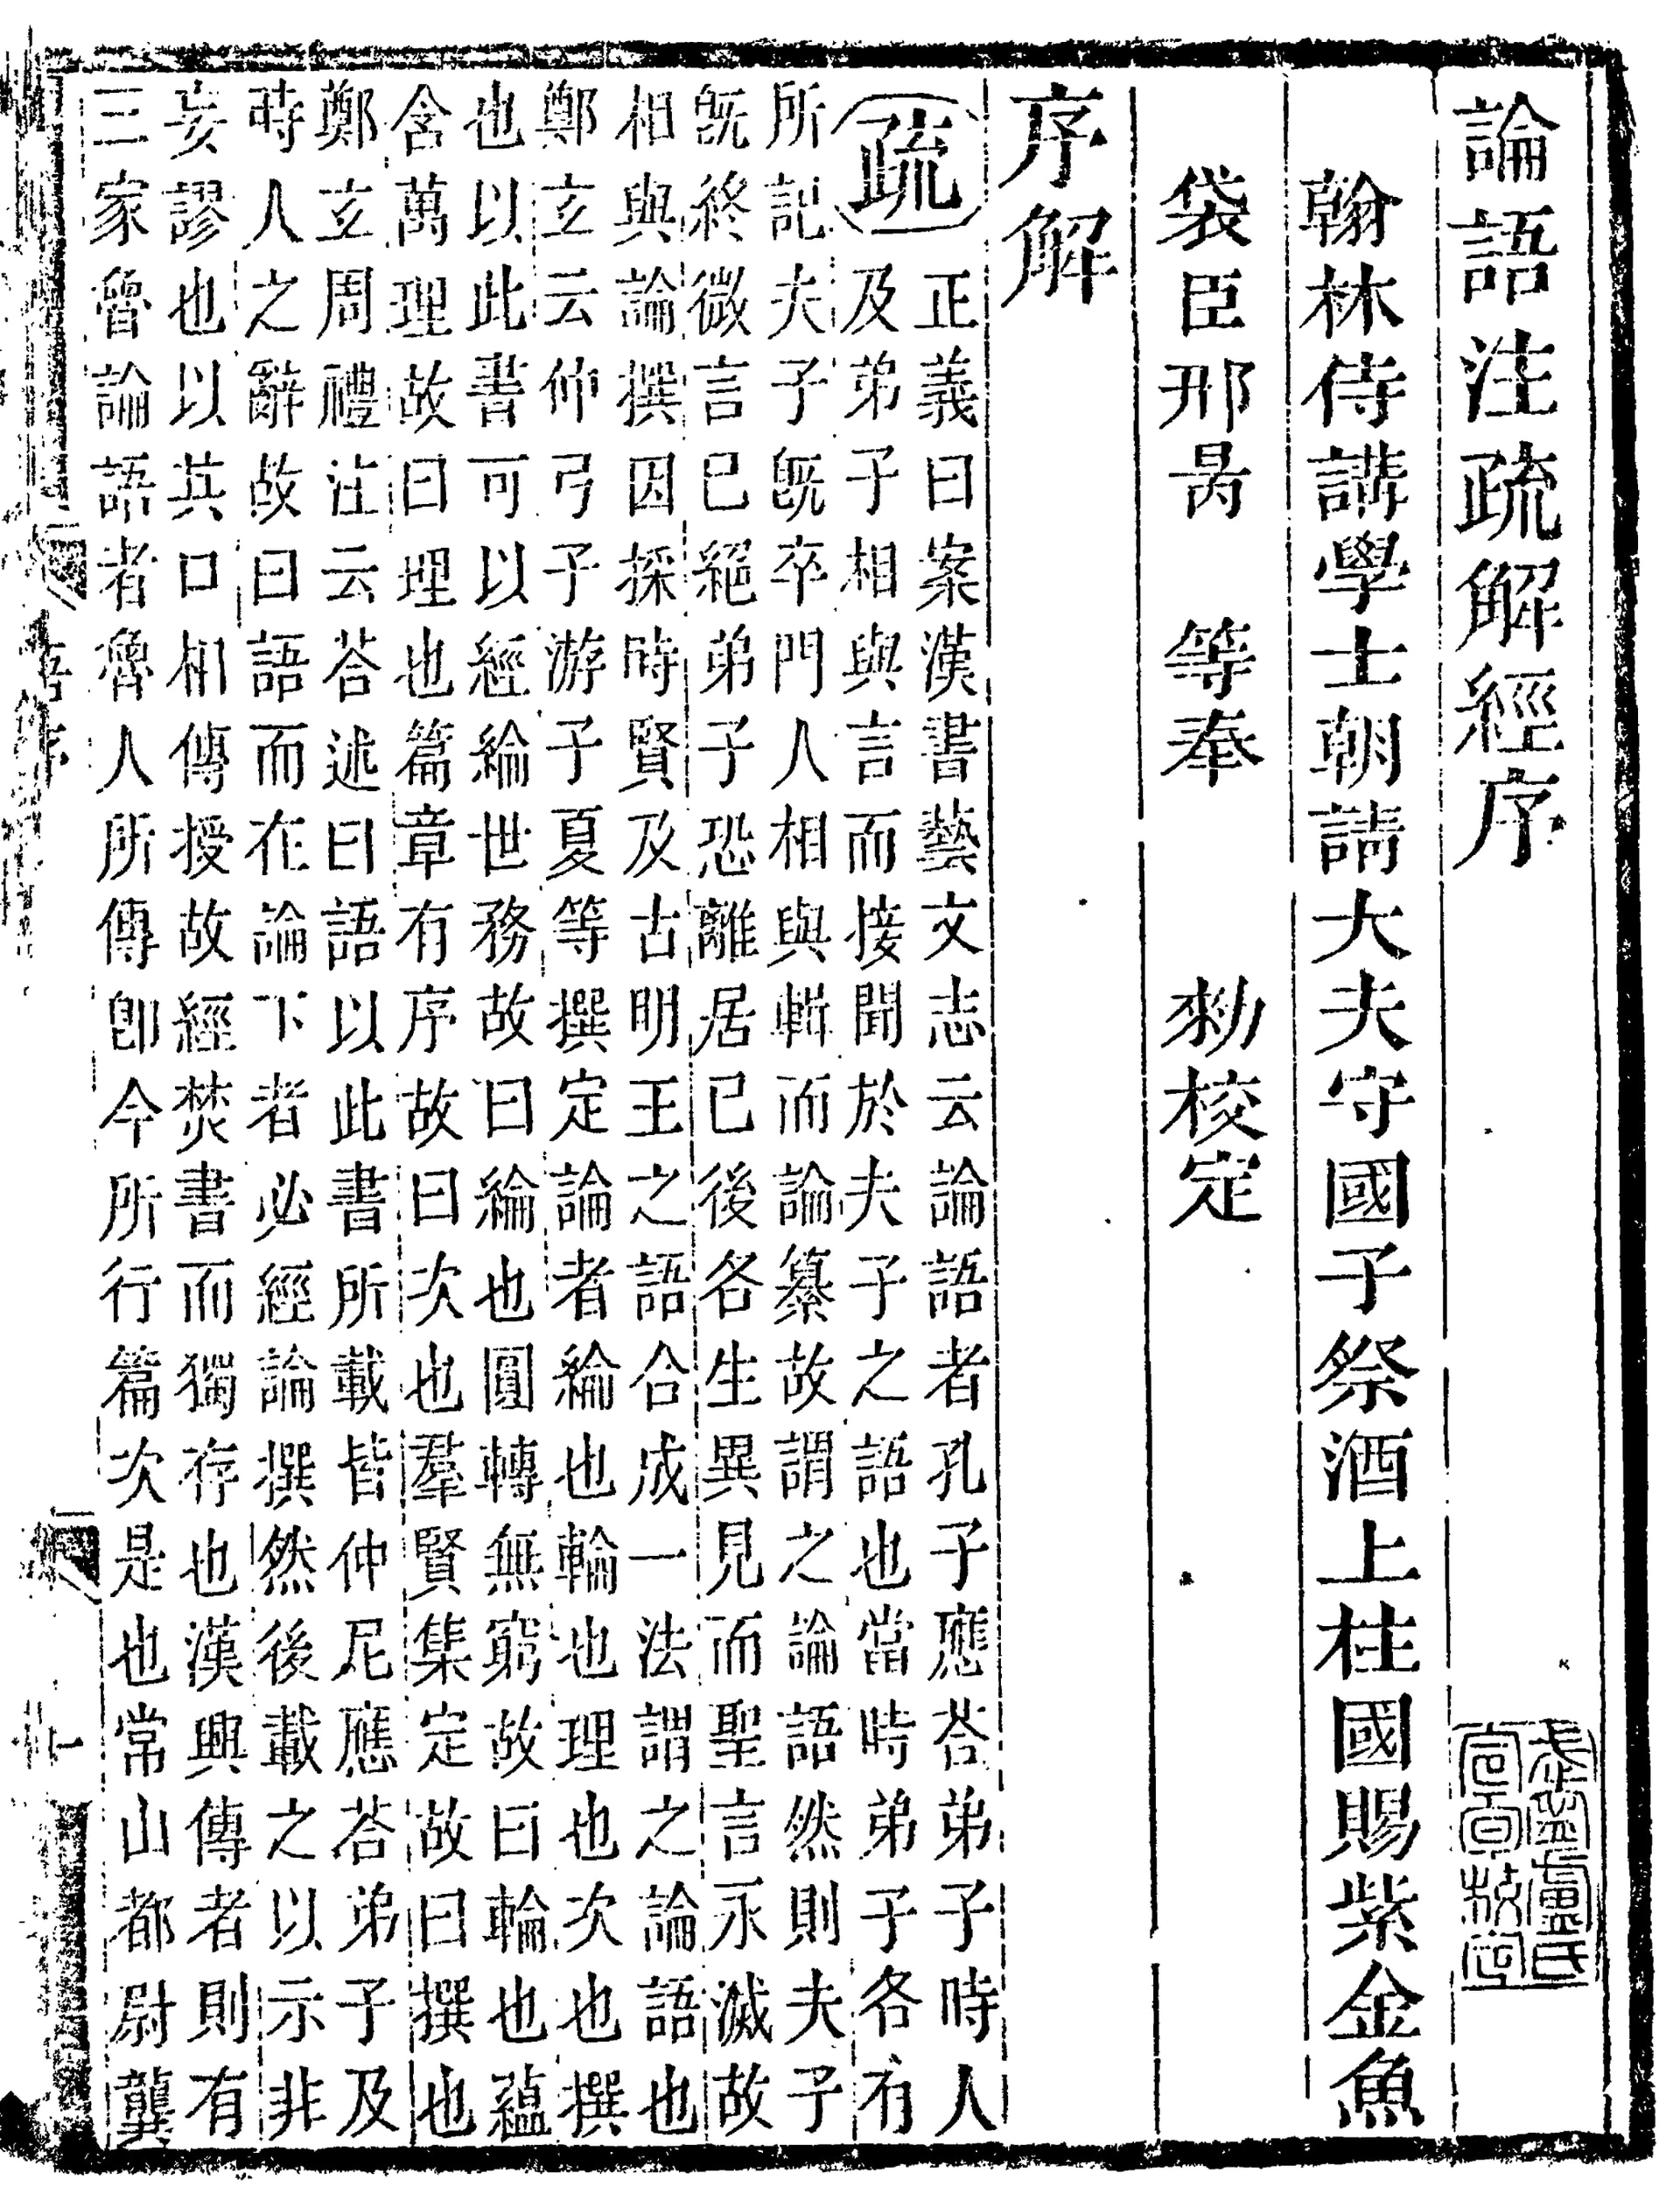 論語注疏解經序
翰林侍講學士朝請大夫守國子祭酒上柱國賜紫金魚
袋臣邢昺 等奉 勑校定
序解
疏
正義曰案漢書藝文志云論語者孔子應荅弟子時人
及弟子相與言而接聞於夫子之語也當時弟子各有
所記夫子既卒門人相與輯而論纂故謂之論語然則夫子
既終微言已絕弟子恐離居已後各生異見而聖言永滅故
相與論撰因採時賢及古明王之語合成一法謂之論語也
鄭玄云仲弓子游子夏等撰定論者綸也輪也理也次也撰
也以此書可以經綸世務故曰綸也圓轉無窮故曰輪也蘊
含萬理故曰理也篇章有序故曰次也羣賢集定故曰撰也
鄭玄周禮注云荅述曰語以此書所載皆仲尼應荅弟子及
時人之辭故曰語而在論下者必經論撰然後載之以示非
妄謬也以其口相傳授故經焚書而獨存也漢興傳者則有
三家魯論語者魯人所傳即今所行篇次是也常山都尉龔